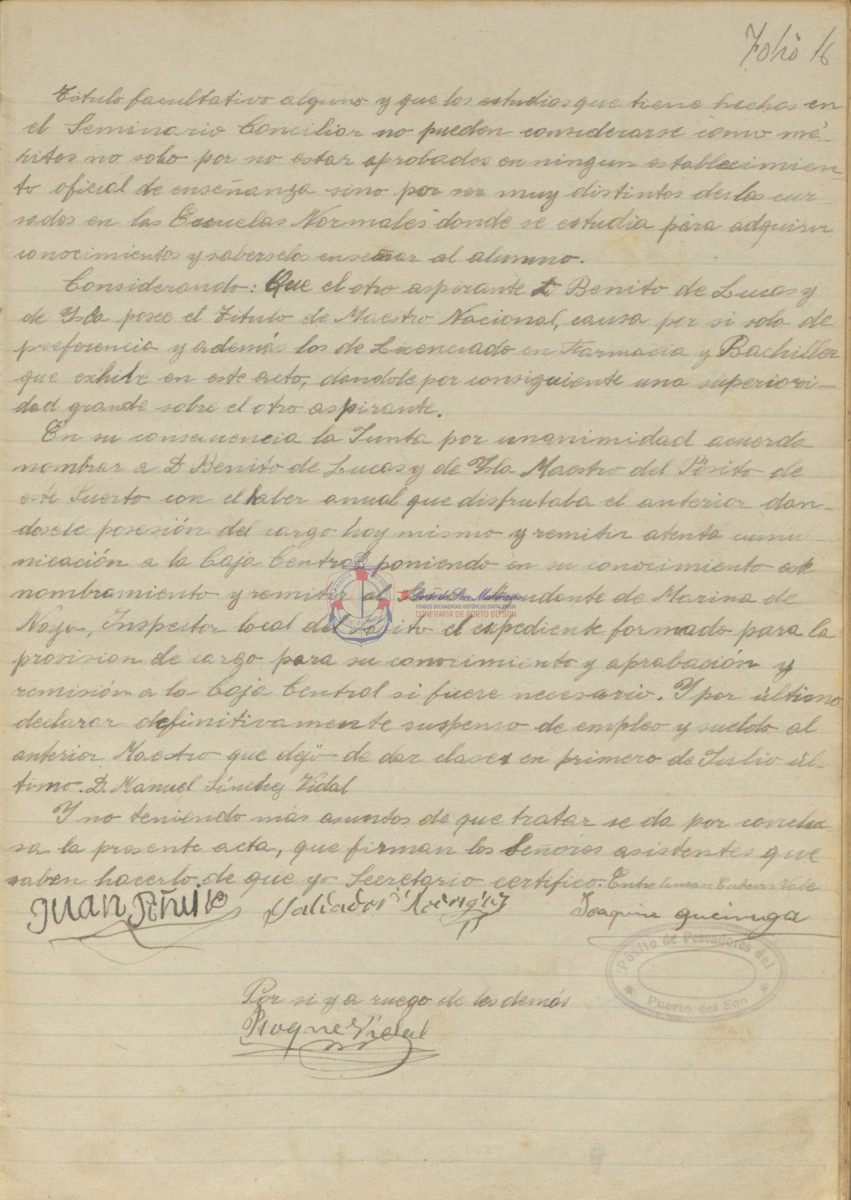 Folio 16
Título facultativo alguno y que los estudios que tiene hechos en
el Seminario Conciliar no pueden considerarse como mé-
ritos no solo por no estar aprobados en ningun establecimien-
to oficial de enseñanza sino por ser muy distintos de los cur-
sados en las Escuelas Normales donde se estudia para adquirir
conocimientos y saberselos enseñar al alumno.
Considerando: Que el otro aspirante D Benito de Lucas y
de Ysla posee el Título de Maestro Nacional, causa por si sola de
preferencia y además los de Licenciado en Farmacia y Bachiller
que exhibe en este acto, dandole por consiguiente una superiori-
dad grande sobre el otro aspirante.
En su consecuencia la Junta por unanimidad acuerda
nombrar a D. Benito de Lucas y de Ysla Maestro del Pósito de
este Puerto con el haber anual que disfrutaba el anterior dan-
dosele posesión del cargo hoy mismo y remitir atenta comu-
nicación a la Caja Central poniendo en su conocimiento este
nombramiento y remitir al Señor de Marina de
Noya, Inspector local del Pósito el expediente formado para la
provision de cargo para su conocimiento y aprobación y
remisión a la Caja Central si fuere necesario. Y por último
declarar definitivamente suspenso de empleo y sueldo al
anterior Maestro que dejó de dar clases en primero de Julio úl-
timo. D. Manuel Sánchez Vidal
Y no teniendo más asuntos de que tratar se da por conclu
sa la presente acta, que firman los Señores asistentes que
saben hacerlo de que yo Secretario certifico. Entre lineas Vale
Juan Salvador Rodriguez Joaquin Queiruga
Pósito de Pescadores del
Puerto del Son
Por si y a ruego de los demás
Roque Vidal
CONFRARÍA DE PORTO DO SON